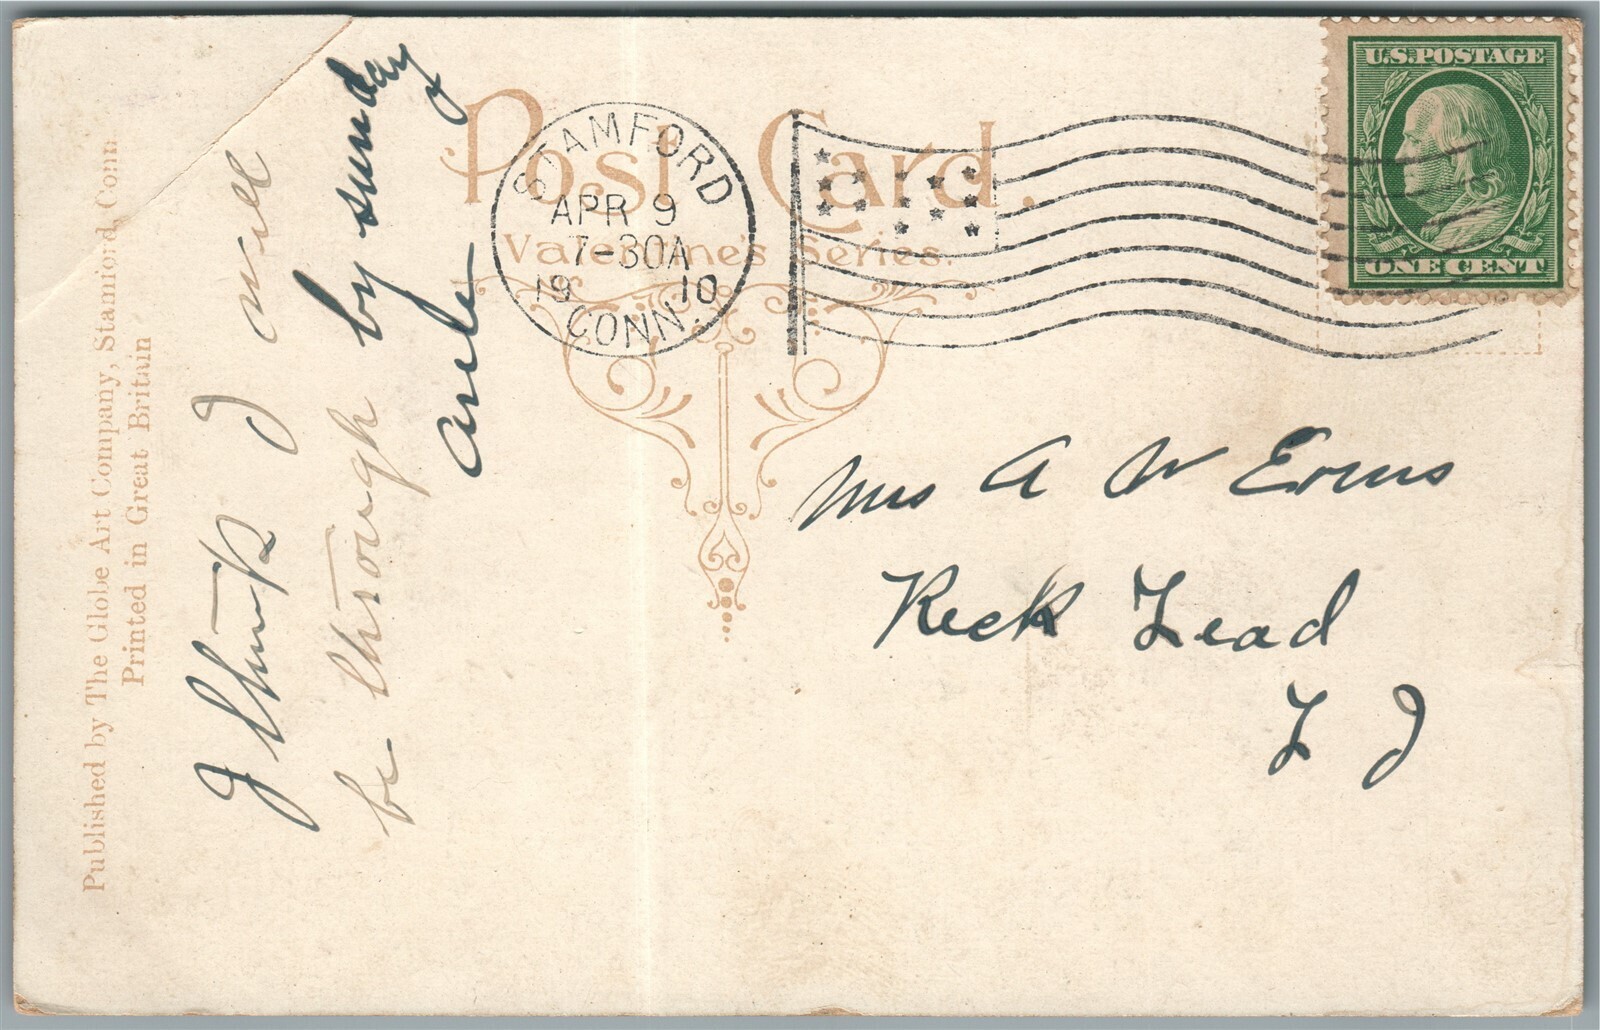 Published by The Globe Art Company, Stamford, Conn
Printed in Great Britain
I think I will
be through by sunday
Post Card.
Valentine's Series.
STAMFORD
APR 9
7-30A
19 10
CONN.
U.S. POSTAGE
ONE CENT
Mrs A W
Reck Lead
L I